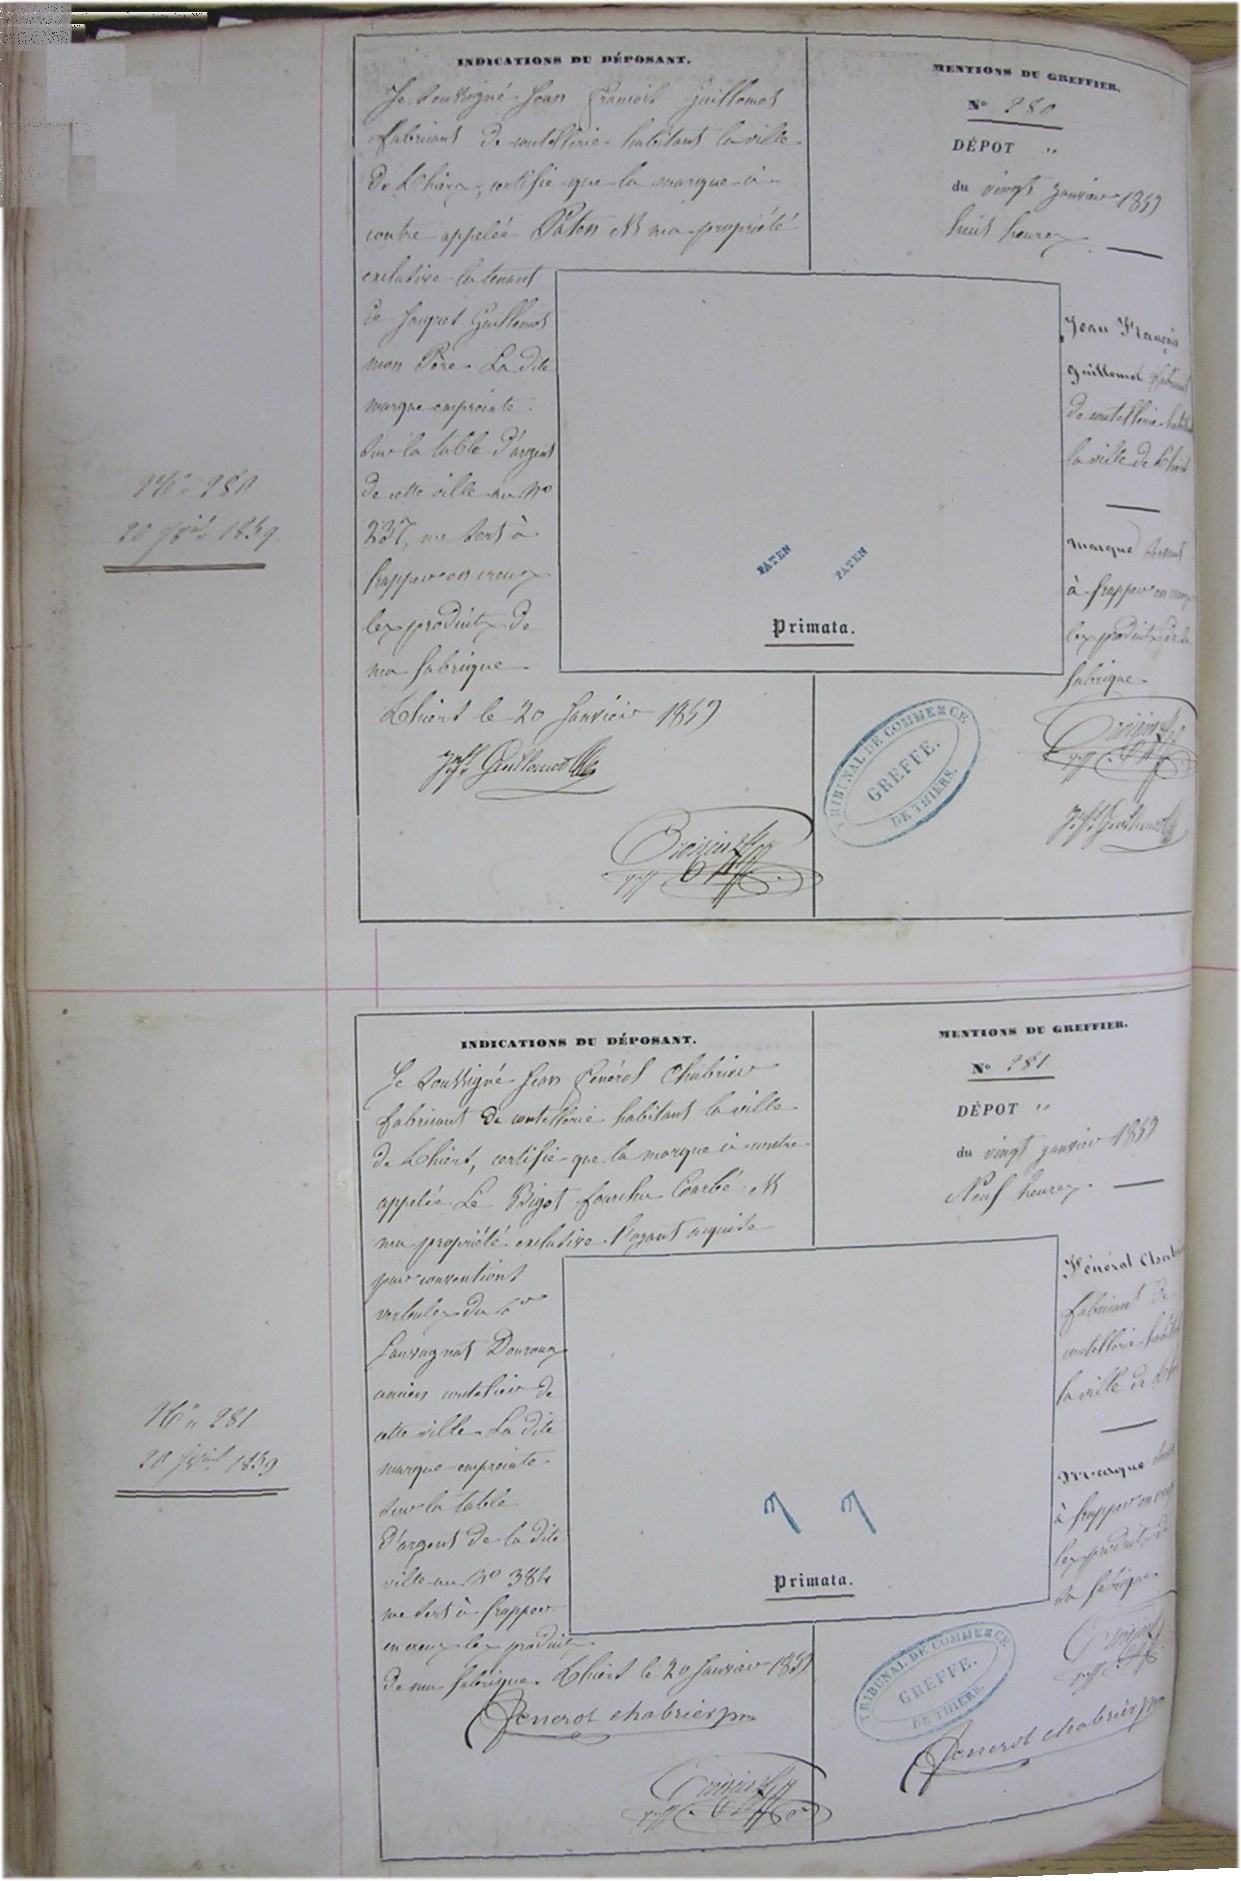 INDICATIONS DU DÉPOSANT.
Je soussigné Jean François Guillemot
fabricant de coutellerie habitant la ville
de Thiers, certifie que la marque ci-
contre appelée Paten est ma propriété
exclusive la tenant
de Jacques Guillemot
mon Père. La dite
marque empreinte
sur la table d'argent
de cette ville au No
237, me sert à
frapper en creux
les produits de
ma fabrique
Thiers le 20 Janvier 1859
Guillemot
MENTIONS DU GREFFIER.
No 280
DÉPOT "
du vingt janvier 1859
huit heures
Jean François
Guillemot fabricant
de coutellerie
la ville de Thiers
Marque servant
à frapper en
les produits de la
fabrique
PATEN PATEN
Primata.
TRIBUNAL DE COMMERCE
GREFFE.
DE THIERS.
Guillemot
No 280
20 1859
INDICATIONS DU DÉPOSANT.
Je soussigné Jean Fenérol Chabrier
fabricant de coutellerie habitant la ville
de Thiers, certifie que la marque ci contre
appelée Le Bigot fourchu Courbé est
ma propriété exclusive l'ayant acquise
par conventions
verbales du Sr
Sauvagnat Douroux
ancien coutelier de
cette ville. La dite
marque empreinte
sur la table
d'argent de la dite
ville au No 384
me sert à frapper
en creux les produits
de ma fabrique. Thiers le 20 Janvier 1859
Fenerol chabrier
MENTIONS DU GREFFIER.
No 281
DÉPOT "
du vingt janvier 1859
Neuf heures
Fénérol
fabricant de
coutellerie
la ville de
Marque
à frapper en
les produits de
la fabrique
Primata.
TRIBUNAL DE COMMERCE
GREFFE.
DE THIERS.
Fenerol chabrier
No 281
20 1859